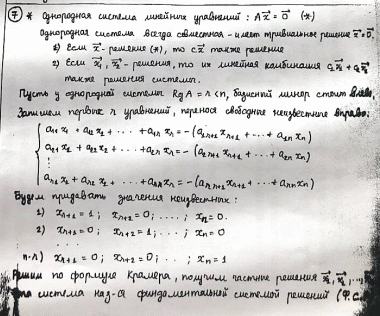 ⑦ * Однородная система линейных уравнений: A x⃗ = 0⃗ (*)
Однородная система всегда совместная - имеет тривиальное решение x⃗ = 0⃗.
1) Если x⃗ - решение (*), то c x⃗ также решение
2) Если x⃗₁, x⃗₂ - решения, то их линейная комбинация c₁x⃗₁ + c₂x⃗₂
также решения системы.
Пусть у однородной системы Rg A = r < n, базисный минор стоит влево.
Запишем первых r уравнений, перенося свободные неизвестные вправо:
a₁₁ x₁ + a₁₂ x₂ + ··· + a₁ᵣ xᵣ = −(a₁ᵣ₊₁ xᵣ₊₁ + ··· + a₁ₙ xₙ)
a₂₁ x₁ + a₂₂ x₂ + ··· + a₂ᵣ xᵣ = −(a₂ᵣ₊₁ xᵣ₊₁ + ··· + a₂ₙ xₙ)
⋮
aᵣ₁ x₁ + aᵣ₂ x₂ + ··· + aᵣᵣ xᵣ = −(aᵣ ᵣ₊₁ xᵣ₊₁ + ··· + aᵣₙ xₙ)
Будем придавать значения неизвестным:
1) xᵣ₊₁ = 1; xᵣ₊₂ = 0; ...; xₙ = 0.
2) xᵣ₊₁ = 0; xᵣ₊₂ = 1; ...; xₙ = 0
...
n-r) xᵣ₊₁ = 0; xᵣ₊₂ = 0; ...; xₙ = 1
Решим по формуле Крамера, получим частные решения x⃗₁, x⃗₂, ...
система наз-ся фундаментальной системой решений (Ф.С.